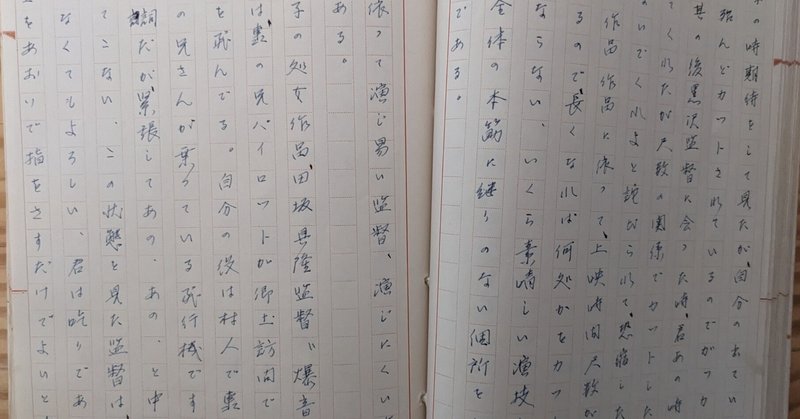 の時期待をして見たが、自分の出てい
殆んどカットされているのでがっか
其の後黒沢監督に会った時、君あの時
てくれたが尺数の関係でカットした
ないでくれよと詫びられて、恐縮した
作品作品に依って、上映時間尺数が
るので、長くなれば何処かをカッ
ならない、いくら素晴しい演技
全体の本筋に継りのない個所を
である。
依って演じ易い監督、演じにくい
ある。
子の処女作品田坂具隆監督〝爆音
は裏の兄パイロットが郷土訪問で
を飛んでる。自分の役は村人で裏
の兄さんが乗っている飛行機です
調だが、緊張してあの、あの、と中
てこない、この状態を見た監督は
なくてもよろしい、君は吃りであ
をあおいで指をさすだけでよいと